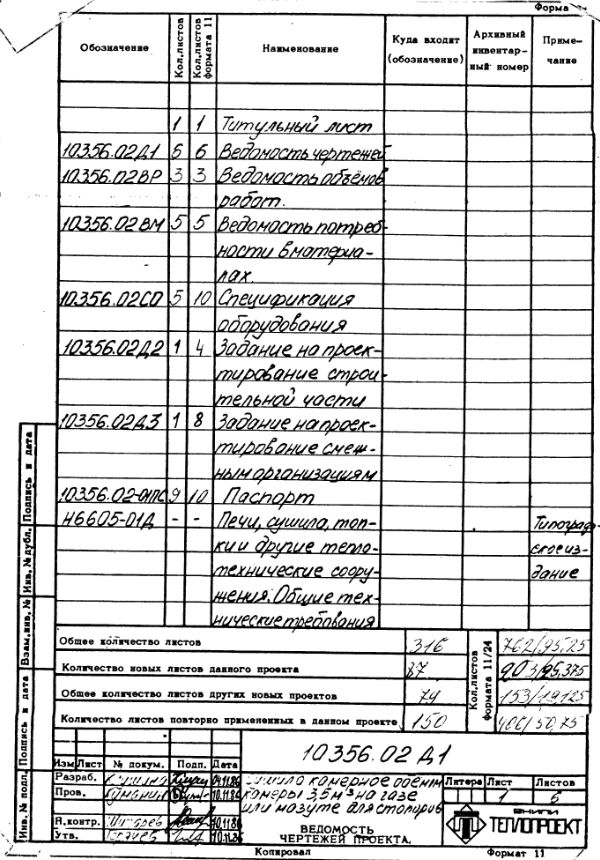 Форма
Обозначение Кол.листов Кол.листов формата 11 Наименование Куда входит (обозначение) Архивный инвентар- ный номер Приме- чание
1 1 Титульный лист
10356.02Д1 6 6 Ведомость чертежей
10356.02ВР 3 3 Ведомость объёмов
работ.
10356.02ВМ 5 5 Ведомость потреб-
ности в материа-
лах.
10356.02СО 5 10 Спецификация
оборудования
10356.02Д2 1 4 Задание на проек-
тирование строи-
тельной части
10356.02Д3 1 8 Задание на проек-
тирование смеж-
ным организациям
10356.02-01ПС 9 10 Паспорт
Н6605-01Д - - Печи, сушила, топ- Типограф
ки и другие тепло- ское из-
технические соору- дание
жения. Общие тех-
нические требования
Общее количество листов 316 Кол.листов формата 11/24 762/95,25
Количество новых листов данного проекта 87
Общее количество листов других новых проектов 79 153/19,125
Количество листов повторно примененных в данном проекте 150 406/50,75
Инв. № подл. Подпись и дата Взам.инв. № Инв. № дубл. Подпись и дата
10356.02 Д1
Изм Лист № докум. Подп. Дата
Разраб. 04.11.86 камерное
Пров. 10.11.86 камеры 3,5 м³ на газе
или мазуте для стопоров
Н.контр. 10.11.86
Утв.
Литера Лист Листов
1 6
ВЕДОМОСТЬ
ЧЕРТЕЖЕЙ ПРОЕКТА.
ВНИПИ
ТЕПЛОПРОЕКТ
Копировал Формат 11